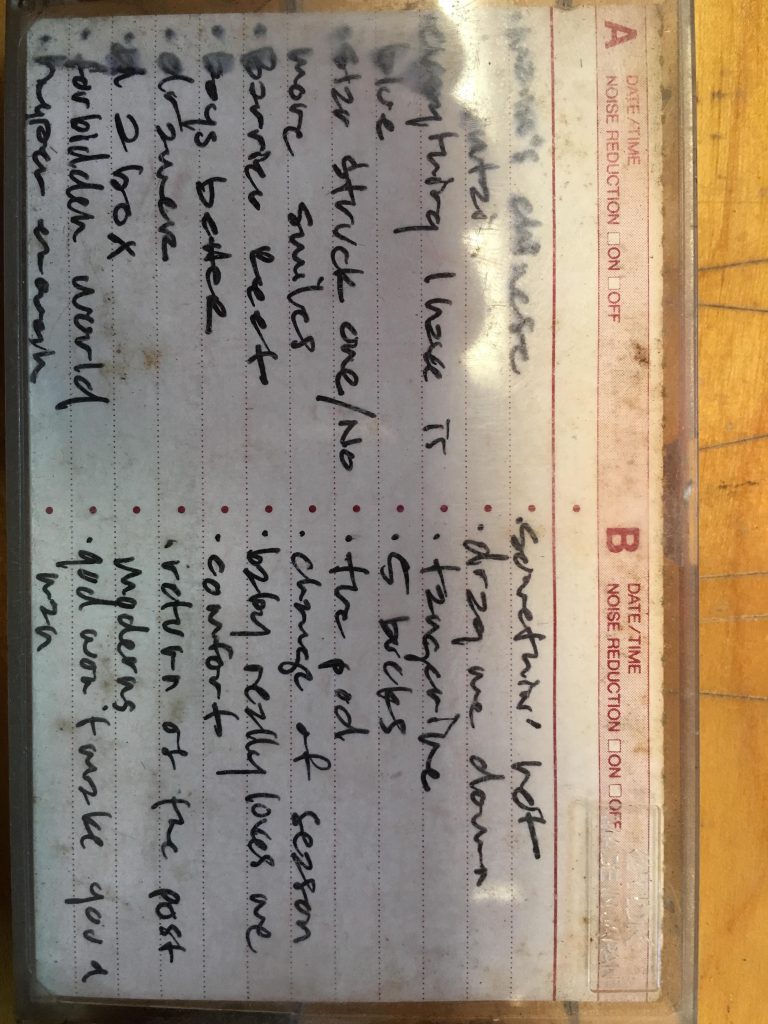 A DATE/TIME
NOISE REDUCTION ☐ON ☐OFF
chinese
everything I have is
blue
star struck one/No
more smiles
Barrier Reef
boys better
drawer
2 box
forbidden world
B DATE/TIME
NOISE REDUCTION ☐ON ☐OFF
somethin' hot
drag me down
tangerine
5 bucks
the pod
change of season
baby really loves me
comfort
return of the post
moderns
god won't make you a
man